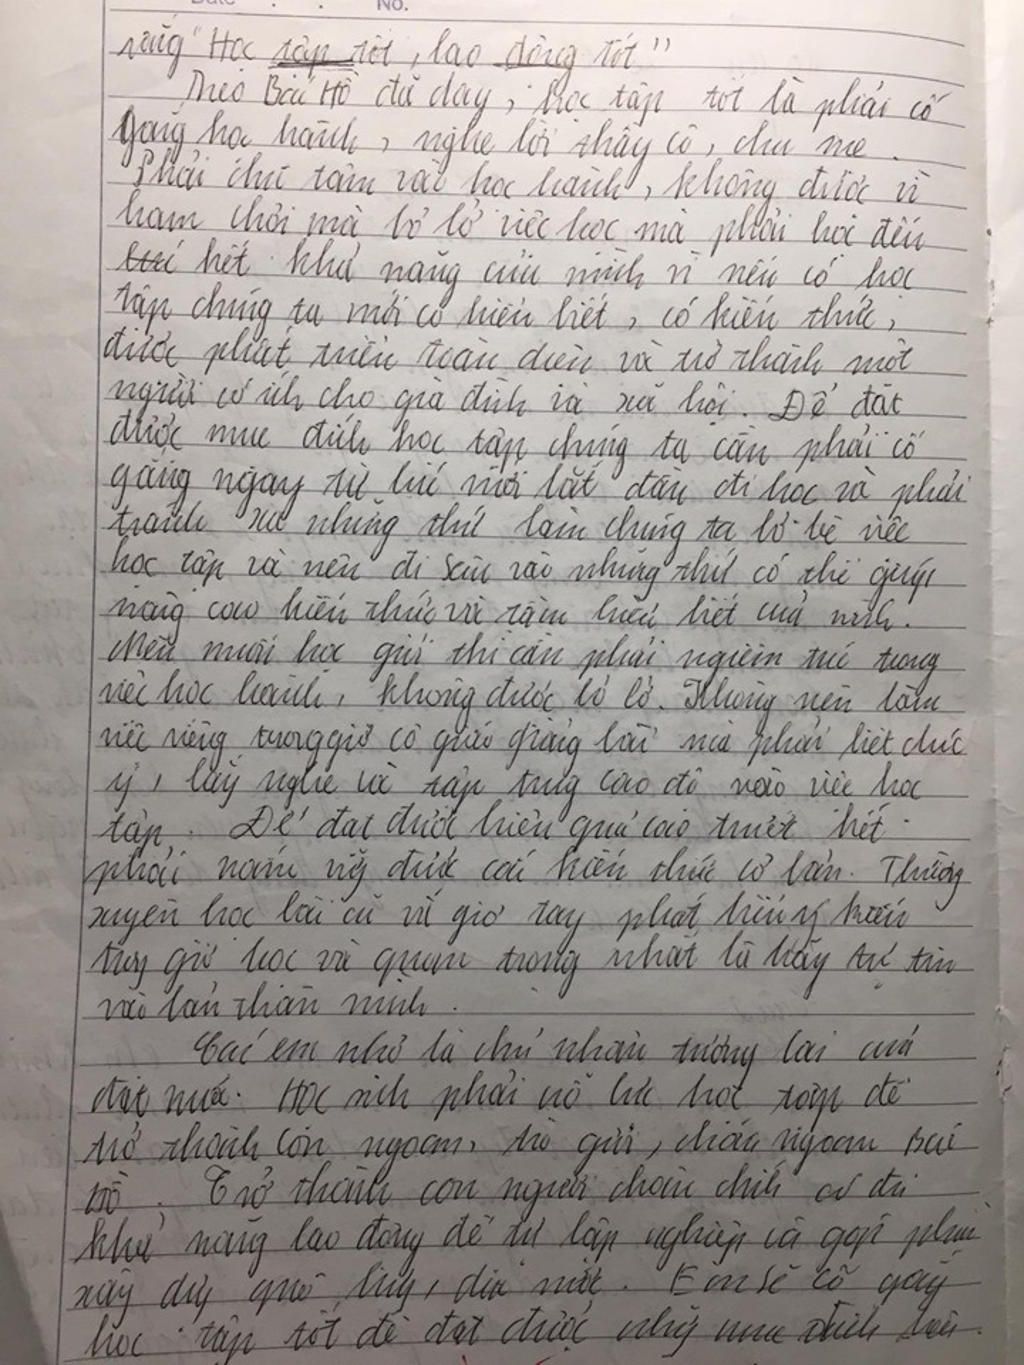 Date . . No.
rằng "Học tập tốt, lao động tốt"
Theo Bác Hồ đã dạy, học tập tốt là phải cố
gắng học hành, nghe lời thầy cô, cha mẹ.
Phải chú tâm vào học hành, không được vì
ham chơi mà bỏ lở việc học mà phải học đến
hết khả năng của mình vì nếu có học
tập chúng ta mới có hiểu biết, có kiến thức,
được phát triển toàn diện và trở thành một
người có ích cho gia đình và xã hội. Để đạt
được mục đích học tập chúng ta cần phải cố
gắng ngay từ lúc mới bắt đầu đi học và phải
tránh xa những thứ làm chúng ta bỏ bê việc
học tập và nên đi sâu vào những thứ có thể giúp
nâng cao kiến thức và tầm hiểu biết của mình.
Nếu muốn học giỏi thì cần phải ngiêm túc trong
việc học hành, không được lơ lở. Không nên làm
việc riêng trong giờ cô giáo giảng bài mà phải biết chú
ý, lắng nghe và tập trung cao độ vào việc học
tập. Để đạt được hiệu quả cao trước hết
phải nắm vững được các kiến thức cơ bản. Thường
xuyên học bài cũ và giơ tay phát biểu ý kiến
trong giờ học và quan trọng nhất là hãy tự tin
vào bản thân mình.
Các em nhỏ là chủ nhân tương lai của
đất nước. Học sinh phải nỗ lực học tập để
trở thành con ngoan, trò giỏi, cháu ngoan Bác
Hồ. Trở thành con người chân chính có đủ
khả năng lao động để tự lập nghiệp và góp phần
xây dựng quê hương, đất nước. Em sẽ cố gắng
học tập tốt để đạt được những mục đích trên.